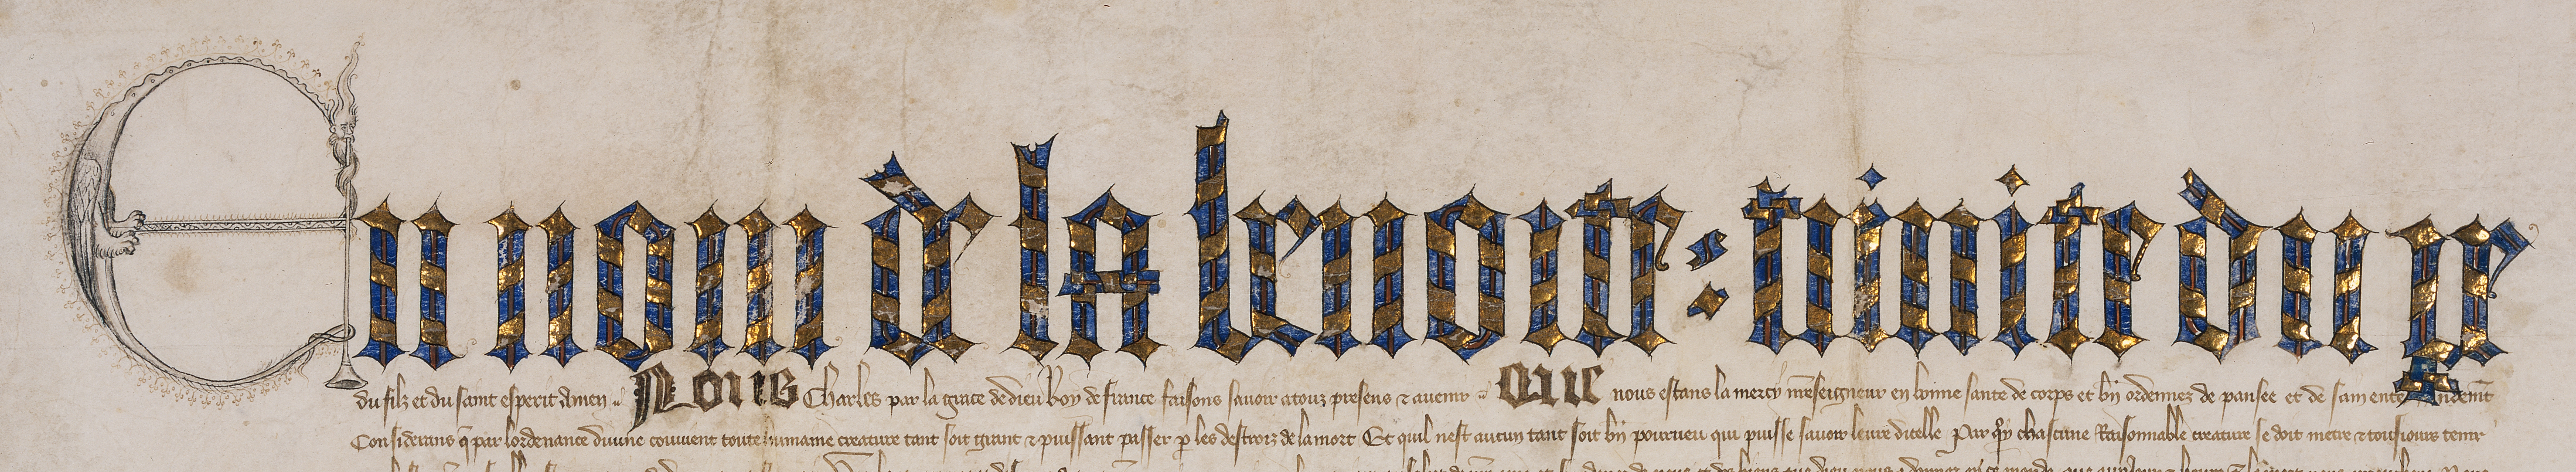 Eu nom de la benoite : trinite du p
du filz et du saint esperit Amen Nous Charles par la grace de dieu Roy de france faisons savoir a touz presens & avenir Que nous estans la mercy n̄re seigneur en bonne sante de corps et bn̄ ordennez de pansee et de sain
Considerans q̄ par lordenance divine convient toute humaine creature tant soit grant & puissant passer p les destroiz de la mort Et quil nest aucun tant soit bn̄ pourveu qui puisse savoir leure dicelle Par quoy chascune Raisonnable creature se doit metre & tousiours tenir